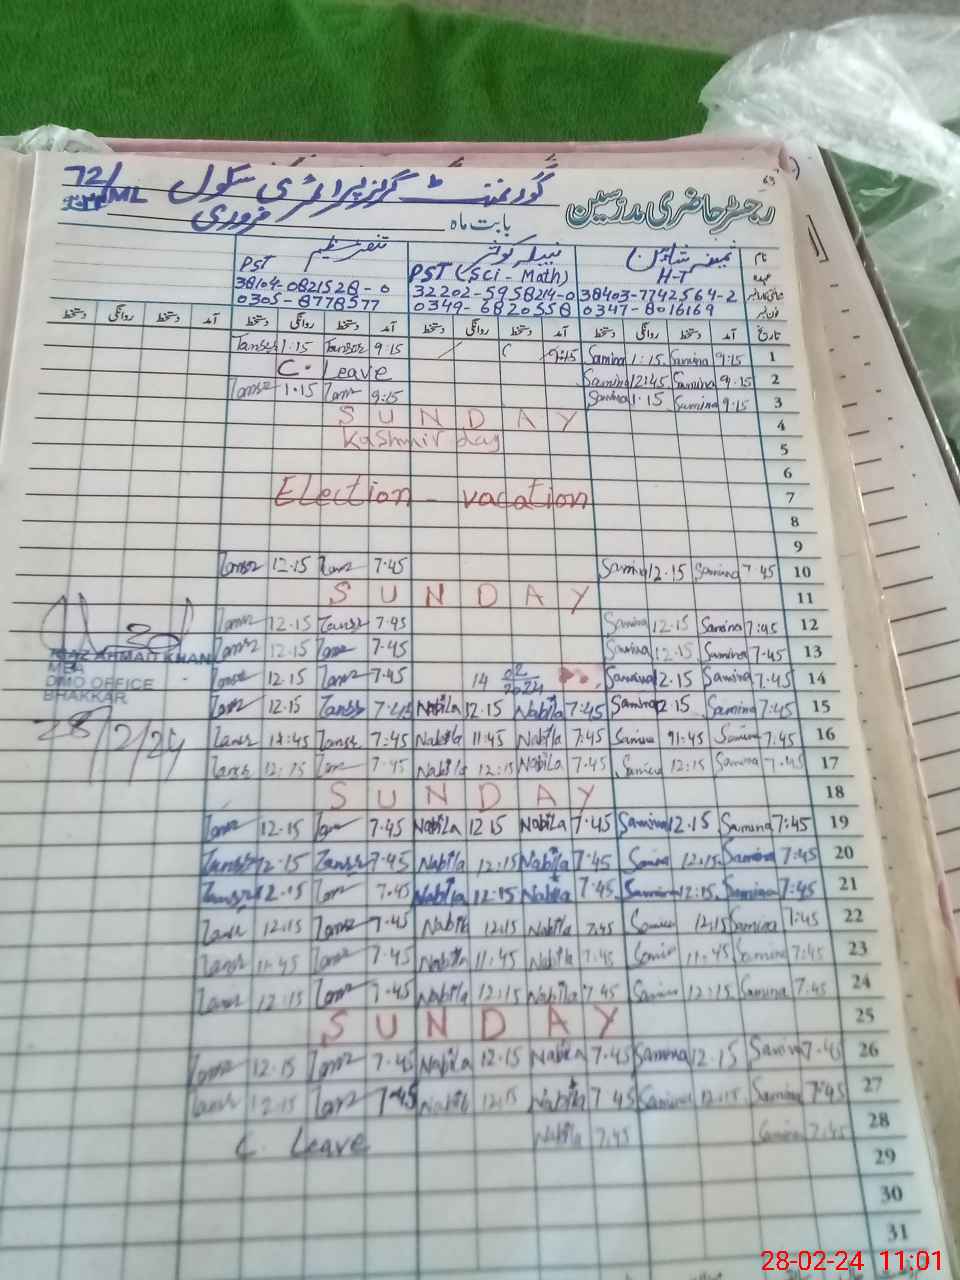 72/ML گورنمنٹ گرلز پرائمری سکول
رجسٹر حاضری مدرسین
بابت ماہ فروری
نام
ثمینہ شاہین نبیلہ کوثر
H-T PST (Sci - Math) PST
38403-7742564-2 32202-5958214-0 38104-0821528-0
0347-8016169 0349-6820558 0305-8778577
تاریخ آمد دستخط روانگی دستخط آمد دستخط روانگی دستخط آمد دستخط روانگی دستخط آمد دستخط روانگی دستخط
1:15 9:15 9:15 Samina 1:15 Samina 9:15 1
C. Leave Samina 12:45 Samina 9:15 2
1.15 9:15 Samina 1.15 Samina 9:15 3
SUNDAY 4
Kashmir day 5
6
Election - vacation 7
8
9
12.15 7.45 Samina 12.15 Samina 7.45 10
SUNDAY 11
12.15 7.45 Samina 12.15 Samina 7:45 12
12.15 7.45 Samina 12.15 Samina 7.45 13
12.15 7.45 14 02 2024 Samina 12.15 Samina 7.45 14
12.15 7.45 Nabila 12.15 Nabila 7:45 Samina 12.15 Samina 7:45 15
7:45 Nabila 11:45 Nabila 7.45 Samina Samina 7.45 16
12:15 7.45 Nabila 12:15 Nabila 7.45 Samina 12:15 Samina 7.45 17
SUNDAY 18
12.15 7.45 Nabila 12.15 Nabila 7.45 Samina 12.15 Samina 7:45 19
12.15 7.45 Nabila 12.15 Nabila 7:45 Samina 12.15 Samina 7:45 20
12.15 7.45 Nabila 12:15 Nabila 7.45 Samina 12:15 Samina 7:45 21
12.15 7.45 Nabila 12.15 Nabila 7.45 Samina 12.15 Samina 7:45 22
11.45 7.45 Nabila 11.45 Nabila 7.45 Samina 11.45 Samina 7:45 23
12:15 7.45 Nabila 12:15 Nabila 7.45 Samina 12:15 Samina 7:45 24
SUNDAY 25
12.15 7.45 Nabila 12.15 Nabila 7.45 Samina 12.15 Samina 7.45 26
12.15 7.45 Nabila 12.15 Nabila 7.45 Samina 12.15 Samina 7:45 27
C. Leave Nabila 7.45 Samina 7.45 28
29
30
31
RIAZ AHMAD KHAN
MEA
DMO OFFICE
BHAKKAR
28/2/24
28-02-24 11:01